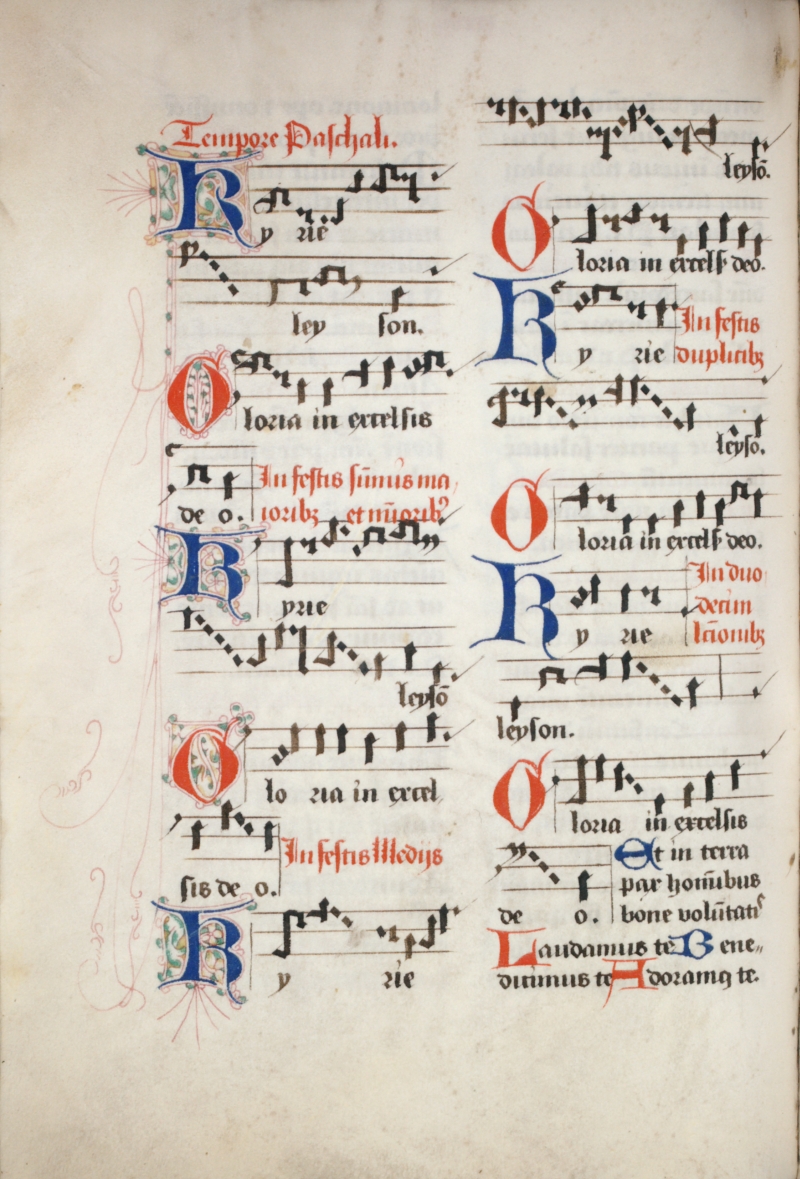 Tempore Paschali.
K
y rie
ley son.
G
loria in excelsis
de o. In festis sūmis ma
ioribꝫ et mīoribꝰ
K
yrie
leysō
G
lo ria in excel
sis de o. In festis Medijs
K
y rie
leysō.
G
loria in excels deo.
K
y rie In festis
duplicibꝫ
leysō.
G
loria in excels deo.
K
y rie In duo
decim
lcīonibꝫ
leyson.
G
loria in excelsis
de o. Et in terra
pax homībus
bone volūtatis
Laudamus te Bene„
dicimus te Adoramꝰ te.